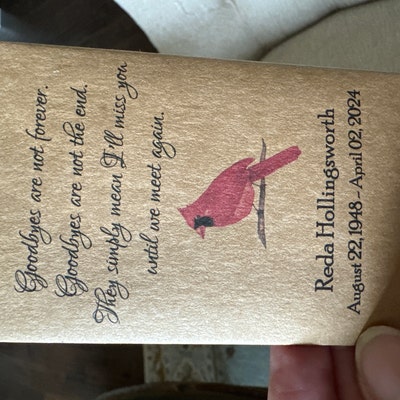 Goodbyes are not forever.
Goodbyes are not the end.
They simply mean I'll miss you
until we meet again.
Reda Hollingsworth
August 22, 1948 – April 02, 2024